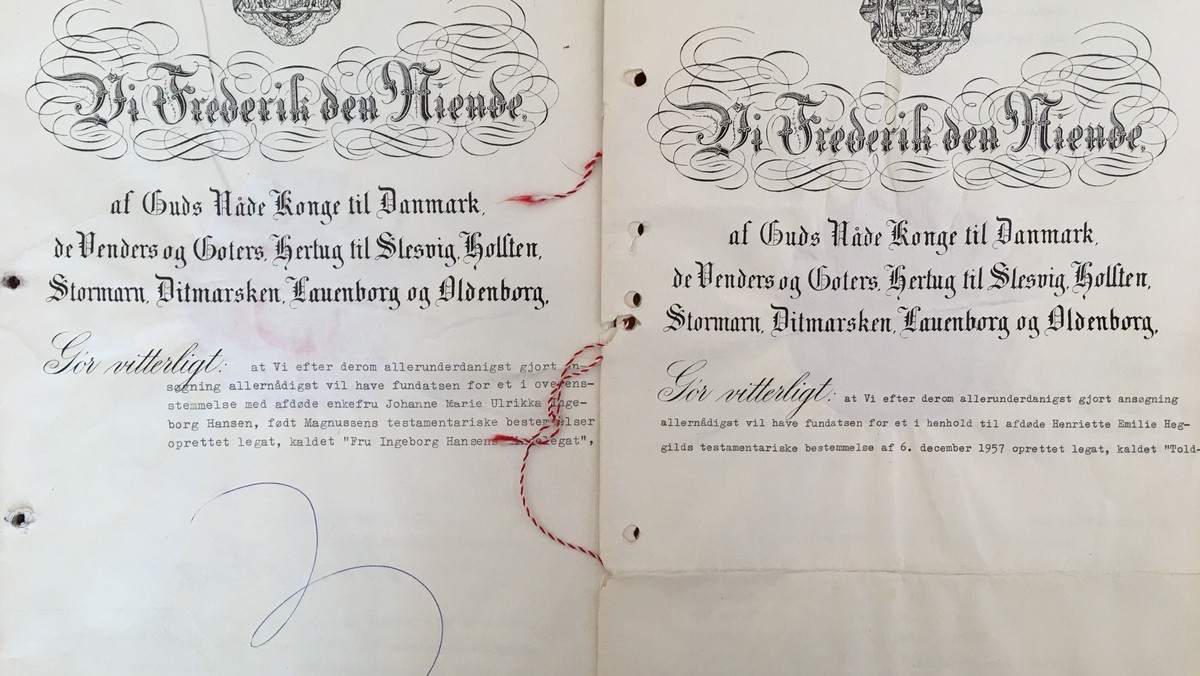 Vi Frederik den Niende,
af Guds Nåde Konge til Danmark,
de Venders og Goters, Hertug til Slesvig, Holsten,
Stormarn, Ditmarsken, Lauenborg og Oldenborg,
Gør vitterligt: at Vi efter derom allerunderdanigst gjort an-
søgning allernådigst vil have fundatsen for et i overens-
stemmelse med afdøde enkefru Johanne Marie Ulrikka Inge-
borg Hansen, født Magnussens testamentariske bestemmelser
oprettet legat, kaldet "Fru Ingeborg Hansens
Vi Frederik den Niende,
af Guds Nåde Konge til Danmark,
de Venders og Goters, Hertug til Slesvig, Holsten,
Stormarn, Ditmarsken, Lauenborg og Oldenborg,
Gør vitterligt: at Vi efter derom allerunderdanigst gjort ansøgning
allernådigst vil have fundatsen for et i henhold til afdøde Henriette Emilie Heg-
gilds testamentariske bestemmelse af 6. december 1957 oprettet legat, kaldet "Told-